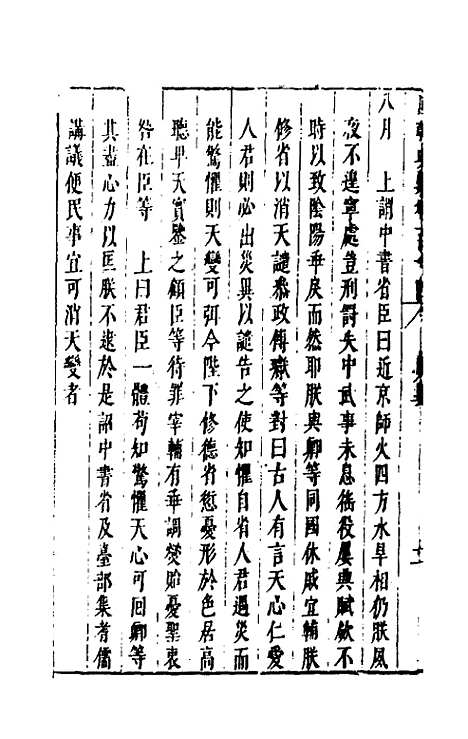 八月　上謂中書省臣曰近京師火四方水旱相仍朕夙
夜不遑寧處豈刑罰失中武事未息徭役屢興賦斂不
時以致陰陽乖戾而然耶朕與卿等同國休戚宜輔朕
修省以消天譴參政傅瓛等對曰古人有言天心仁愛
人君則必出災異以譴告之使知懼自省人君遇災而
能驚懼則天變可弭今陛下修德省愆憂形於色居高
聽卑天實鑒之顧臣等待罪宰輔有乖調燮貽憂聖衷
咎在臣等　上曰君臣一體苟知驚懼天心可回卿等
其盡心力以匡朕不逮於是詔中書省及臺部集耆儒
講議便民事宜可消天變者